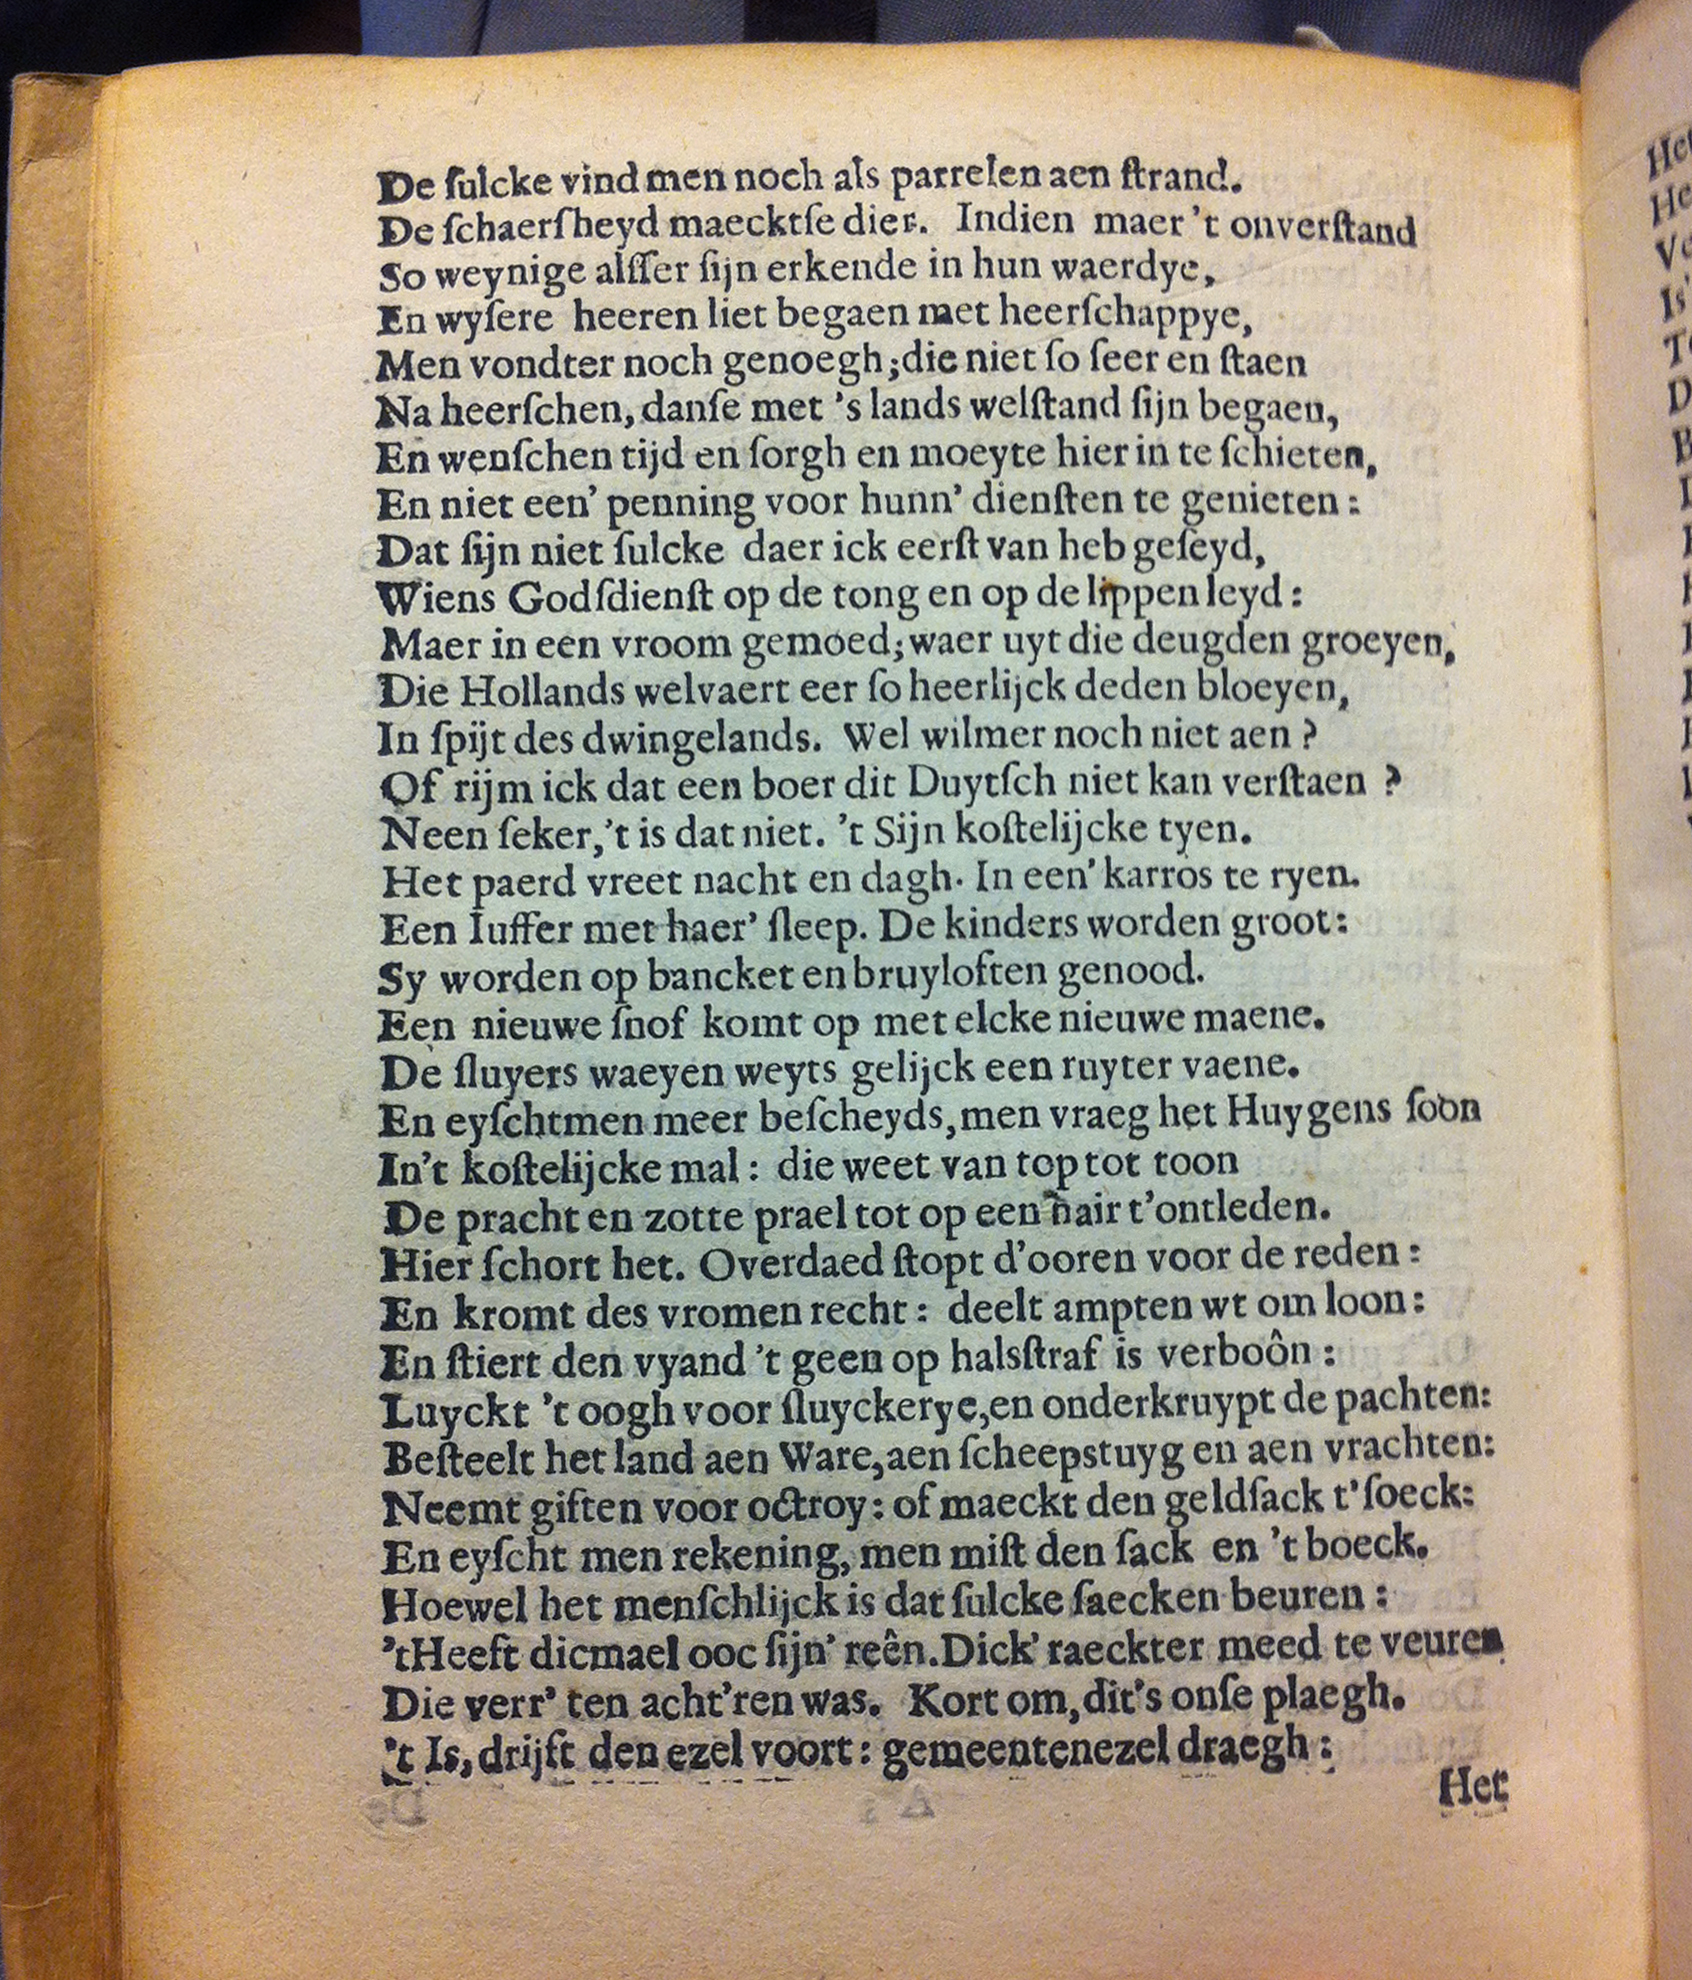 De ſulcke vind men noch als parrelen aen ſtrand.
De ſchaerſheyd maecktſe dier. Indien maer 't onverſtand
So weynige alſſer ſijn erkende in hun waerdye,
En wyſere heeren liet begaen met heerſchappye,
Men vondter noch genoegh; die niet ſo ſeer en ſtaen
Na heerſchen, danſe met 's lands welſtand ſijn begaen,
En wenſchen tijd en ſorgh en moeyte hier in te ſchieten,
En niet een' penning voor hunn' dienſten te genieten:
Dat ſijn niet ſulcke daer ick eerſt van heb geſeyd,
Wiens Godſdienſt op de tong en op de lippen leyd:
Maer in een vroom gemoed; waer uyt die deugden groeyen,
Die Hollands welvaert eer ſo heerlijck deden bloeyen,
In ſpijt des dwingelands. Wel wilmer noch niet aen?
Of rijm ick dat een boer dit Duytſch niet kan verſtaen?
Neen ſeker, 't is dat niet. 't Sijn koſtelijcke tyen.
Het paerd vreet nacht en dagh. In een' karros te ryen.
Een Iuffer met haer' ſleep. De kinders worden groot:
Sy worden op bancket en bruyloften genood.
Een nieuwe ſnof komt op met elcke nieuwe maene.
De ſluyers waeyen weyts gelijck een ruyter vaene.
En eyſchtmen meer beſcheyds, men vraeg het Huygens ſoon
In't koſtelijcke mal: die weet van top tot toon
De pracht en zotte prael tot op een hair t'ontleden.
Hier ſchort het. Overdaed ſtopt d'ooren voor de reden:
En kromt des vromen recht: deelt ampten wt om loon:
En ſtiert den vyand 't geen op halsſtraf is verboôn:
Luyckt 't oogh voor ſluyckerye, en onderkruypt de pachten:
Beſteelt het land aen Ware, aen ſcheepstuyg en aen vrachten:
Neemt giften voor octroy: of maeckt den geldſack t'ſoeck:
En eyſcht men rekening, men miſt den ſack en 't boeck.
Hoewel het menſchlijck is dat ſulcke ſaecken beuren:
'tHeeft dicmael ooc ſijn' reên. Dick' raeckter meed te veuren
Die verr' ten acht'ren was. Kort om, dit's onſe plaegh.
't Is, drijft den ezel voort: gemeentenezel draegh:
Het